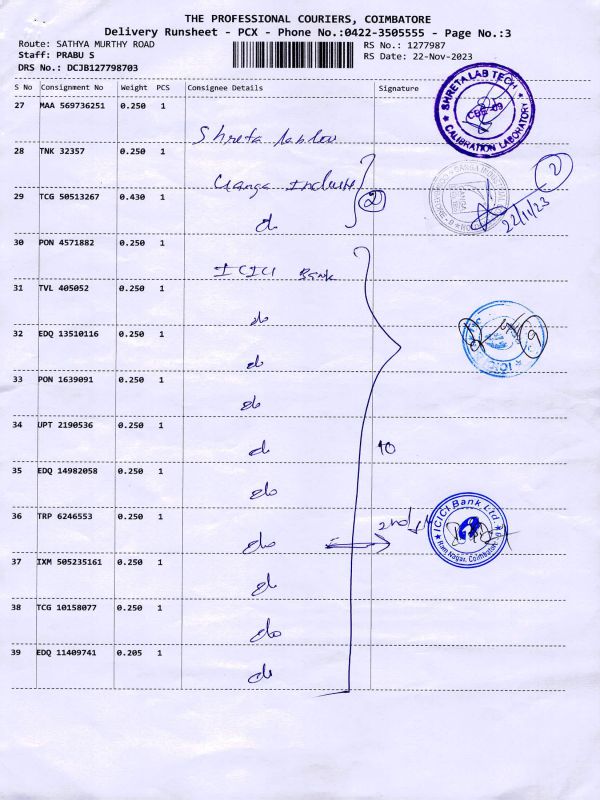 THE PROFESSIONAL COURIERS, COIMBATORE
Delivery Runsheet - PCX - Phone No.:0422-3505555 - Page No.:3
Route: SATHYA MURTHY ROAD RS No.: 1277987
Staff: PRABU S RS Date: 22-Nov-2023
DRS No.: DCJB127798703
S No Consignment No Weight PCS Consignee Details Signature
27 MAA 569736251 0.250 1
SHRETA LAB TECH
CBE-09
★ CALIBRATION LABORATORY ★
Shreta
28 TNK 32357 0.250 1
Ganga
2
2
22/11/23
29 TCG 50513267 0.430 1
do
30 PON 4571882 0.250 1
ICICI Bank
31 TVL 405052 0.250 1
do
32 EDQ 13510116 0.250 1
do
33 PON 1639091 0.250 1
do
34 UPT 2190536 0.250 1
do 10
35 EDQ 14982058 0.250 1
do
36 TRP 6246553 0.250 1
do 2nd
ICICI Bank Ltd.
Ram Nagar, Coimbatore
37 IXM 505235161 0.250 1
do
38 TCG 10158077 0.250 1
do
39 EDQ 11409741 0.205 1
do